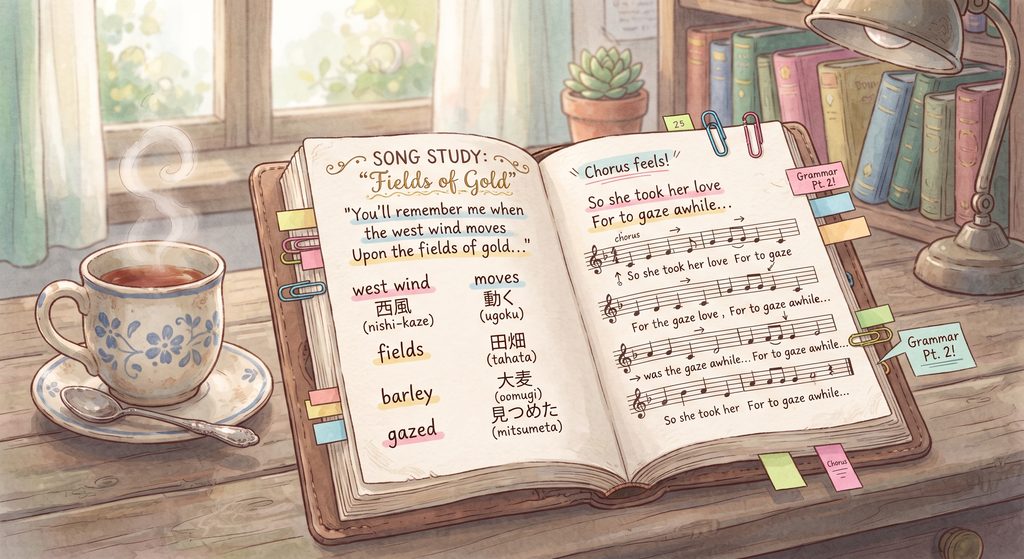 SONG STUDY:
"Fields of Gold"
"You'll remember me when
the west wind moves
Upon the fields of gold..."
west wind
西風
(nishi-kaze)
moves
動く
(ugoku)
fields
田畑
(tahata)
barley
大麦
(oomugi)
gazed
見つめた
(mitsumeta)
25
"Chorus feels!"
So she took her love
For to gaze awhile...
chorus
So she took her love For to gaze
For the gaze love , For to gaze awhile...
→ was the gaze awhile... For to gaze awhile...
So she took her For to gaze awhile...
Grammar
Pt. 2!
Grammar
Pt. 2!
Chorus